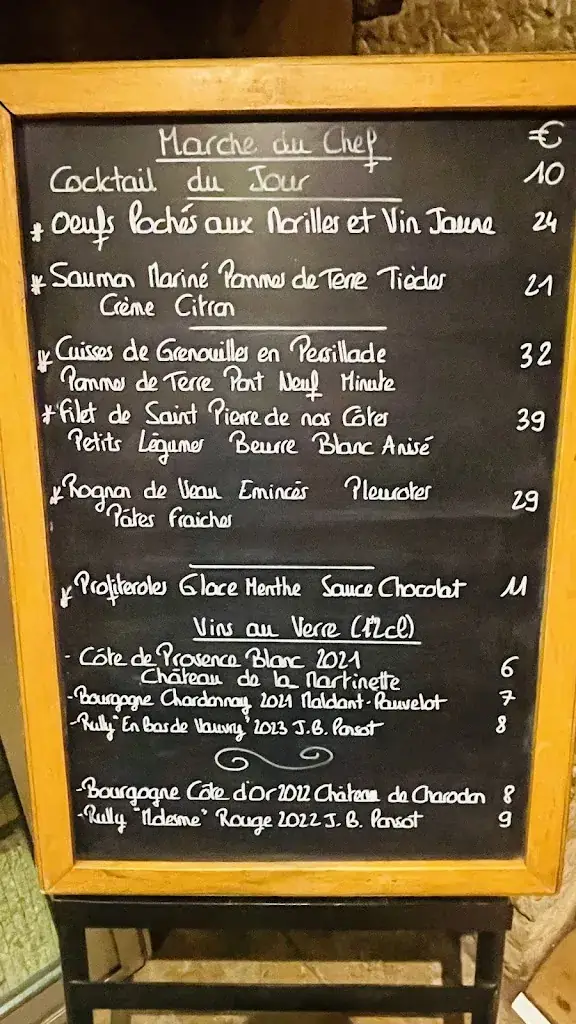 Marche du Chef €
Cocktail du Jour 10
* Oeufs Pochés aux Morilles et Vin Jaune 24
* Saumon Mariné Pommes de Terre Tièdes 21
Crème Citron
* Cuisses de Grenouilles en Persillade 32
Pommes de Terre Pont Neuf Minute
* Filet de Saint Pierre de nos Côtes 39
Petits Légumes Beurre Blanc Anisé
* Rognon de Veau Emincés Pleurotes 29
Pâtes Fraiches
* Profiteroles Glace Menthe Sauce Chocolat 11
Vins au Verre (12cl)
- Côte de Provence Blanc 2021 6
Château de la Martinette
- Bourgogne Chardonnay 2021 Maldant-Pauvelot 7
- Rully "En Bas de Vauvry" 2023 J.B. Ponsot 8
- Bourgogne Côte d'Or 2022 Château de Charodon 8
- Rully "Molesme" Rouge 2022 J.B. Ponsot 9